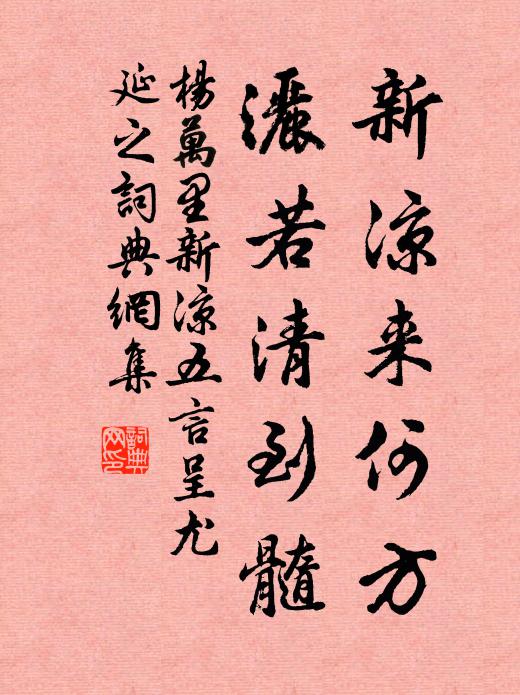 新涼来何方
灑若清到髓
楊萬里新涼五言呈尤
延之詞典網集
詞典
网印